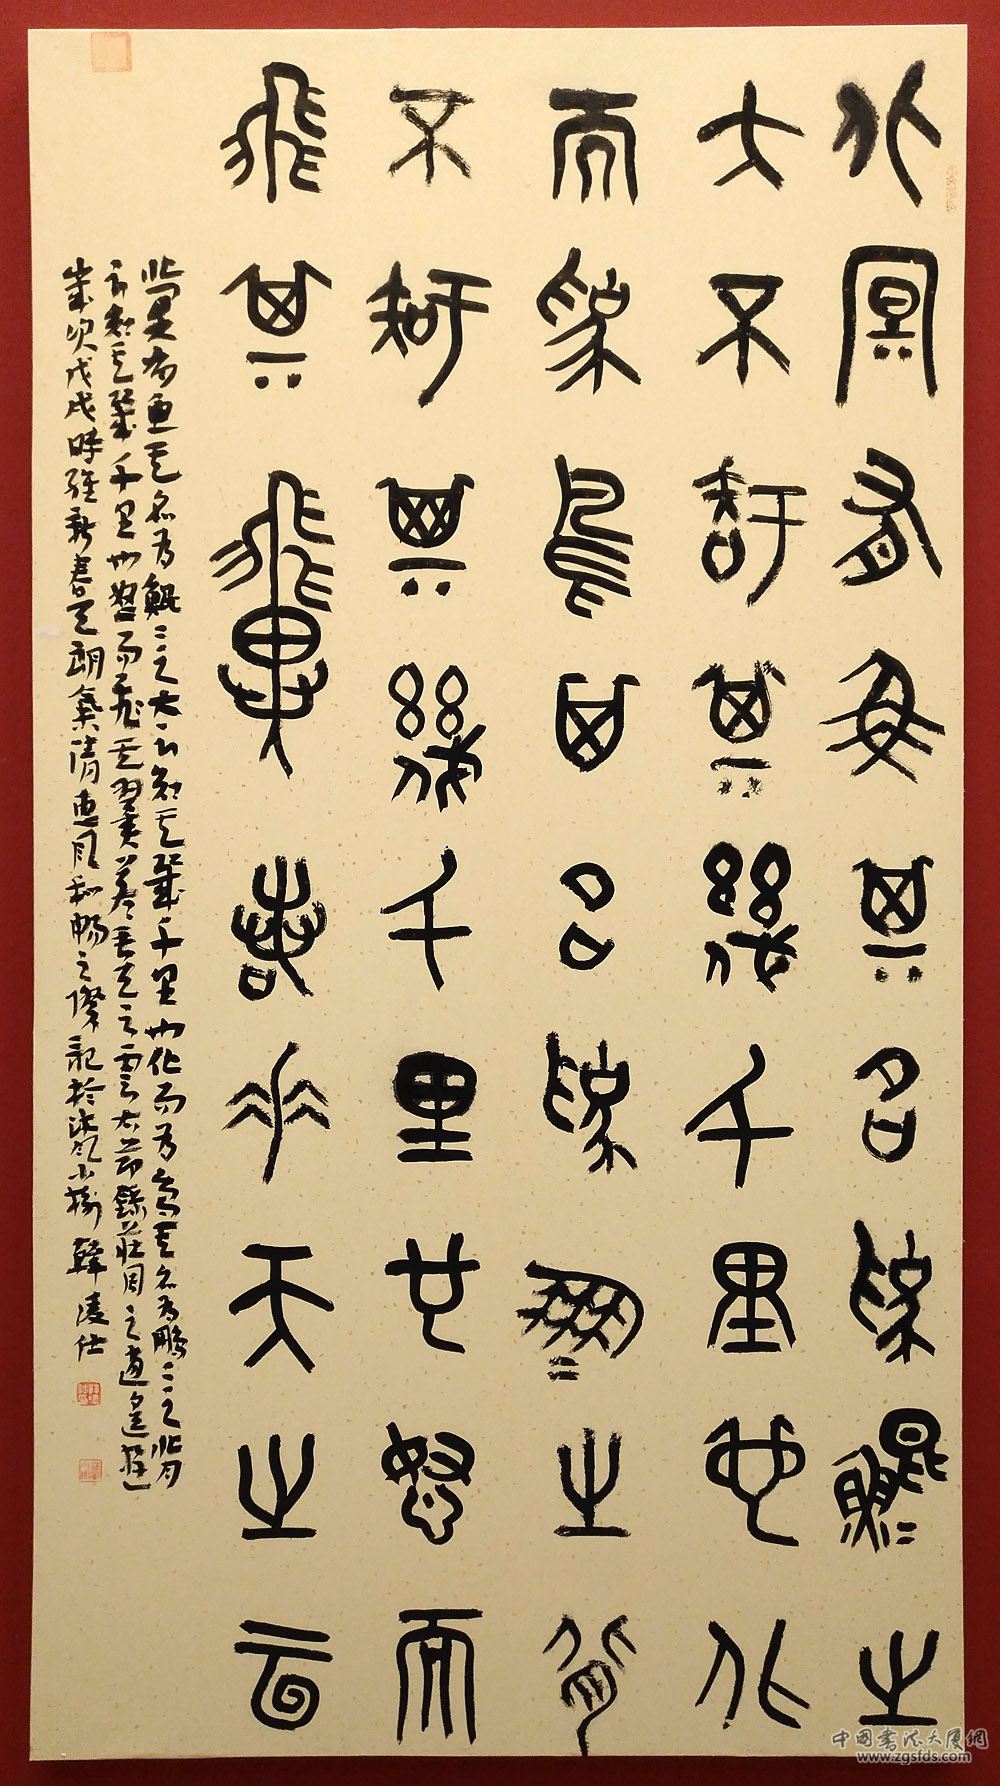 北冥有魚其名為鯤〻之
大不知其幾千里也化
而為鳥其名為鵬〻之背
不知其幾千里也怒而
飛其翼若垂天之雲
北冥有魚其名為鯤〻之大不知其幾千里也化而為鳥其名為鵬〻之背
不知其幾千里也怒而飛其翼若垂天之雲右節錄莊周之逍遙遊
歲次戊戌時維新春天朗氣清惠風和暢之際記於 韓凌仕
中國書法大廈網
www.zgsfds.com